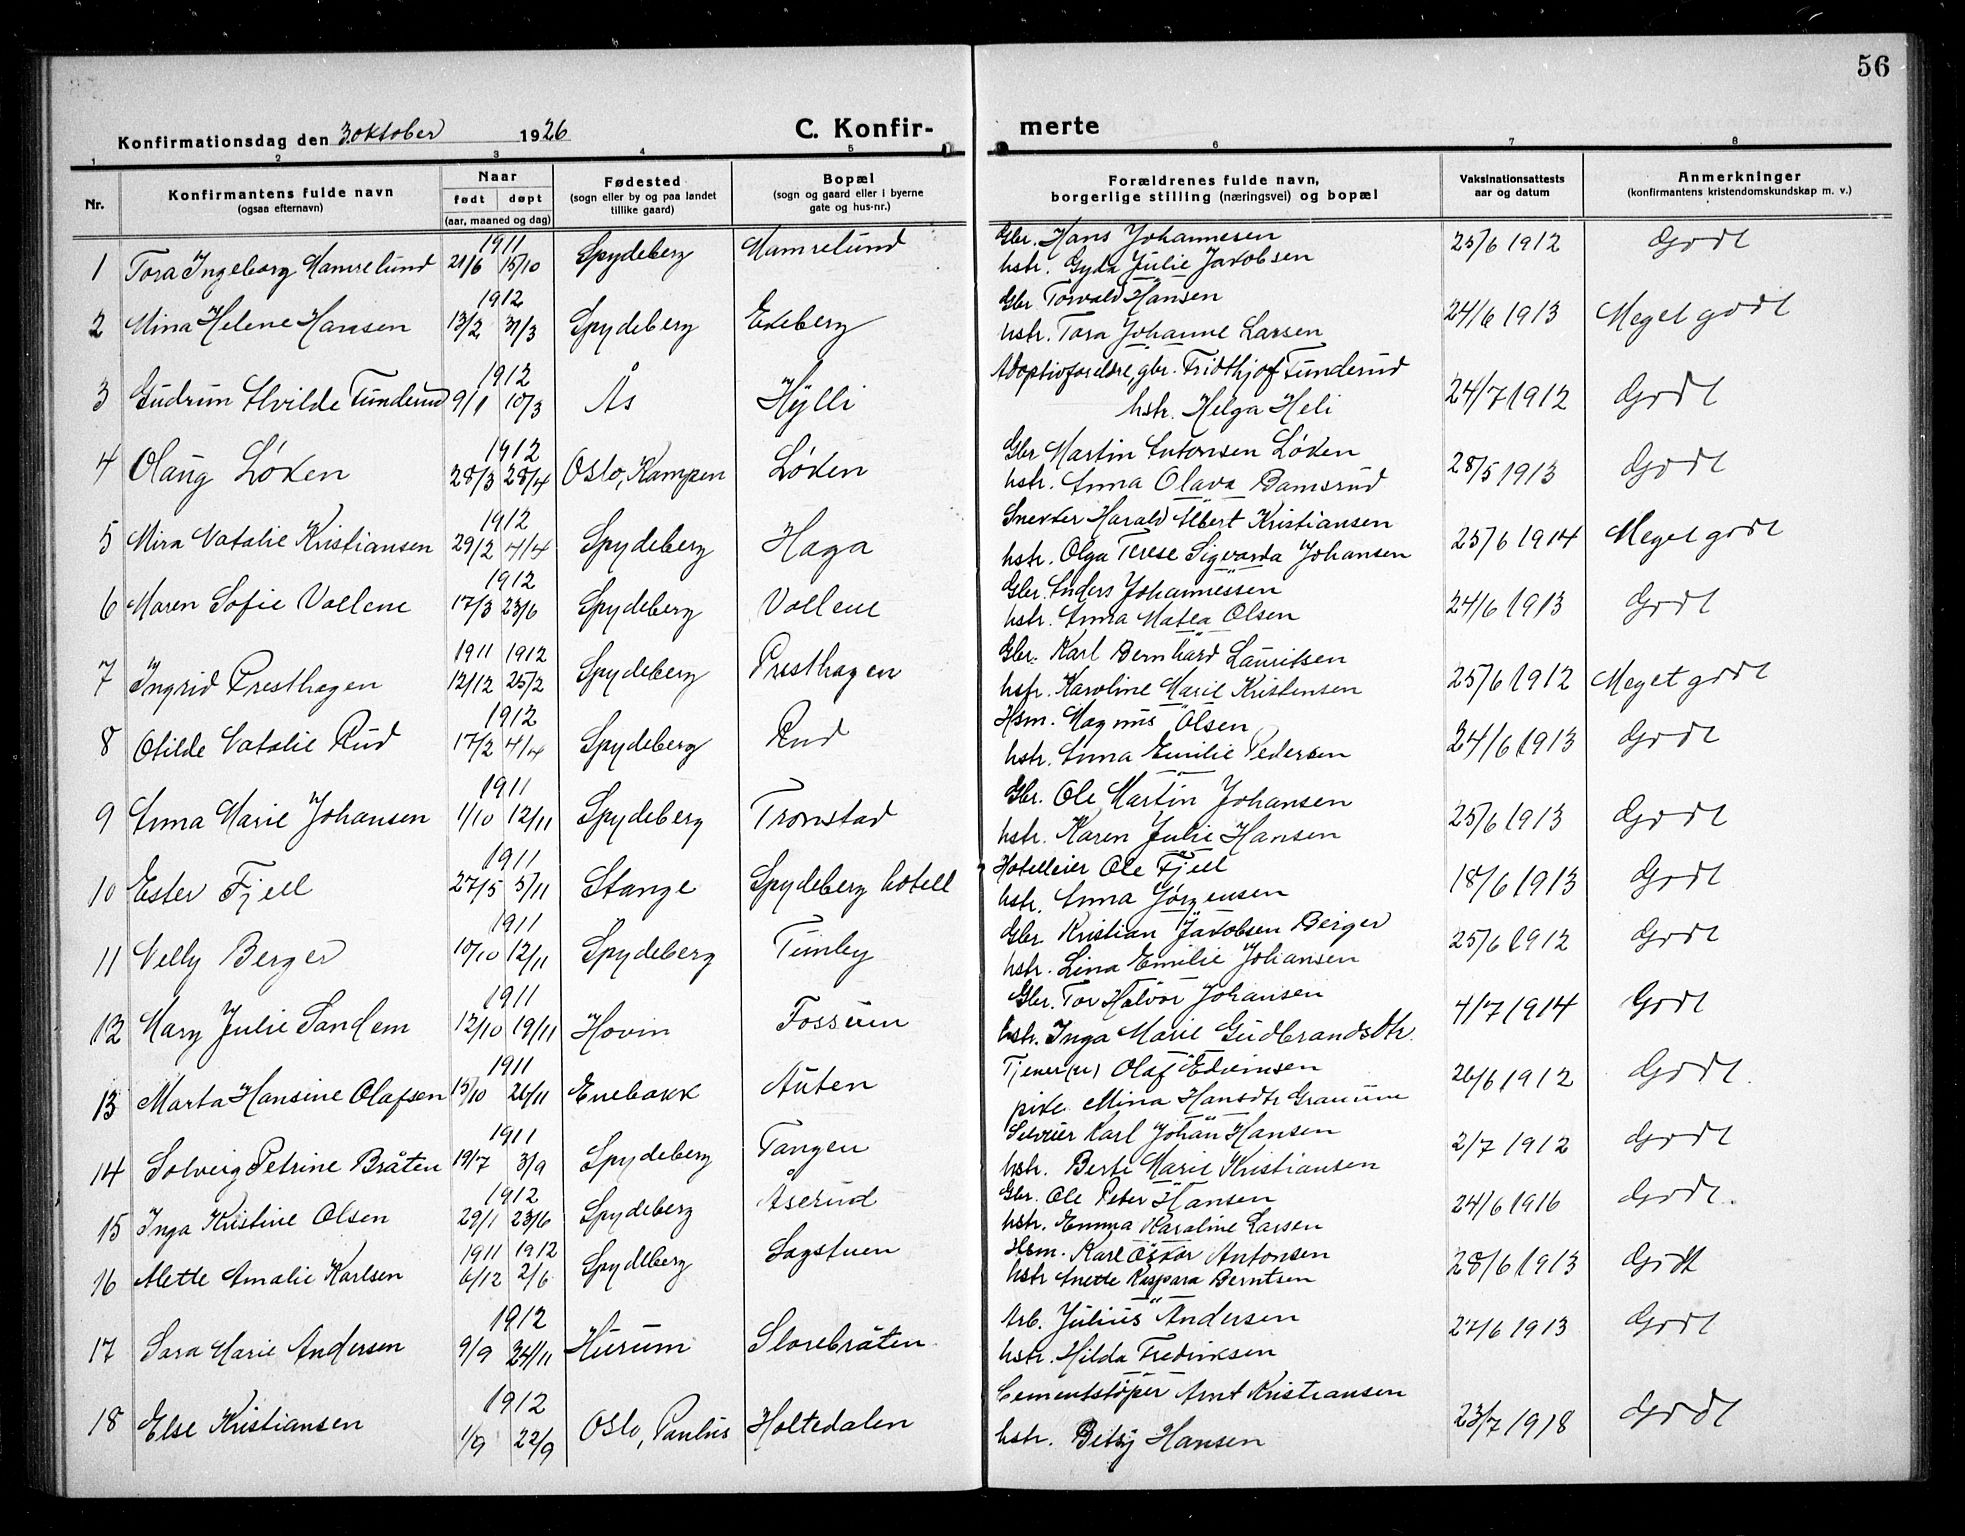 56
Konfirmationsdag den 3 oktober 1926
C. Konfir-
merte
1 2 3 4 5 6 7 8
Nr.
Konfirmantens fulde navn
(ogsaa efternavn)
Naar
født døpt
(aar, maaned og dag)
Fødested
(sogn eller by og paa landet
tillike gaard)
Bopæl
(sogn og gaard eller i byerne
gate og hus-nr.)
Forældrenes fulde navn,
borgerlige stilling (næringsvei) og bopæl
Vaksinationsattests
aar og datum
Anmerkninger
(konfirmantens kristendomskundskap m. v.)
1911 Gbr. Hans Johannesen
1 Tora Ingeborg Mamrelund 21/6 15/10 Spydeberg Mamrelund hstr. Gyda Julie Jakobsen 25/6 1912 Godt
1912 Gbr Torvald Hansen
2 Mina Helene Hansen 13/2 31/3 Spydeberg Ekeberg hstr. Tora Johanne Larsen 24/6 1913 Meget godt
1912 Adoptivforeldre, gbr. Fridthjof Tunderud
3 Gudrun Alvilde Tunderud 9/1 10/3 Ås Hylli hstr. Helga Heli 24/7 1912 Godt
1912 Gbr Martin Antonsen Løken
4 Olaug Løken 28/3 28/4 Oslo, Kampen Løken hstr. Anna Olava Bamsrud 28/5 1913 Godt
1912 Snekker Harald Albert Kristiansen
5 Mira Natalie Kristiansen 29/2 4/4 Spydeberg Haga hstr. Olga Terese Sigvarda Johansen 25/6 1914 Meget godt
1912 Gbr. Anders Johannessen
6 Maren Sofie Vollene 17/3 23/6 Spydeberg Vollene hstr. Anna Matea Olsen 24/6 1913 Godt
1911 1912 Gbr. Karl Bernhard Lauritsen
7 Ingrid Presthagen 12/12 25/2 Spydeberg Presthagen hstr. Karoline Marie Kristensen 25/6 1912 Meget godt
1912 Hsm. Magnus Olsen
8 Otilde Natalie Rud 17/2 4/4 Spydeberg Rud hstr. Anna Emilie Pedersen 24/6 1913 Godt
1911 Gbr. Ole Martin Johansen
9 Anna Marie Johansen 1/10 12/11 Spydeberg Tronstad hstr. Karen Julie Hansen 25/6 1913 Godt
1911 Hotelleier Ole Fjell
10 Ester Fjell 27/5 5/11 Stange Spydeberg hotell hstr. Anna Jørgensen 18/6 1913 Godt
1911 Gbr Kristian Jakobsen Berger
11 Nelly Berger 10/10 12/11 Spydeberg Timby hstr. Lina Emilie Johansen 25/6 1912 Godt
1911 Gbr. Tor Halvor Johansen
12 Mary Julie Sandem 12/10 19/11 Hovin Fossum hstr. Inga Marie Gudbrandsdtr. 4/7 1914 Godt
1911 Tjener(u) Olaf Edvinsen
13 Marta Hansine Olafsen 15/10 26/11 Enebakk Auten pike Mina Hansdtr 26/6 1912 Godt.
1911 Selveier Karl Johan Hansen
14 Solveig Petrine Bråten 19/7 3/9 Spydeberg Tangen hstr. Berte Marie Kristiansen 2/7 1912 Godt
1912 Gbr. Ole Peter Hansen
15 Inga Kristine Olsen 29/1 23/6 Spydeberg Åserud hstr. Emma Karoline Larsen 24/6 1916 Godt.
1911 1912 Hsm. Karl Oskar Antonsen
16 Mette Amalie Karlsen 6/12 2/6 Spydeberg Sagstuen hstr Anette Kaspara Berntsen 28/6 1913 Godt
1912 Arb. Julius Andersen
17 Sara Marie Andersen 9/9 24/11 Hurum Storebråten hstr. Hilda Fredriksen 27/6 1913 Godt
1912 Cementstøper Arnt Kristiansen
18 Else Kristiansen 1/9 22/9 Oslo, Paulus Holtedalen hstr. Betsy Hansen 23/7 1918 Godt